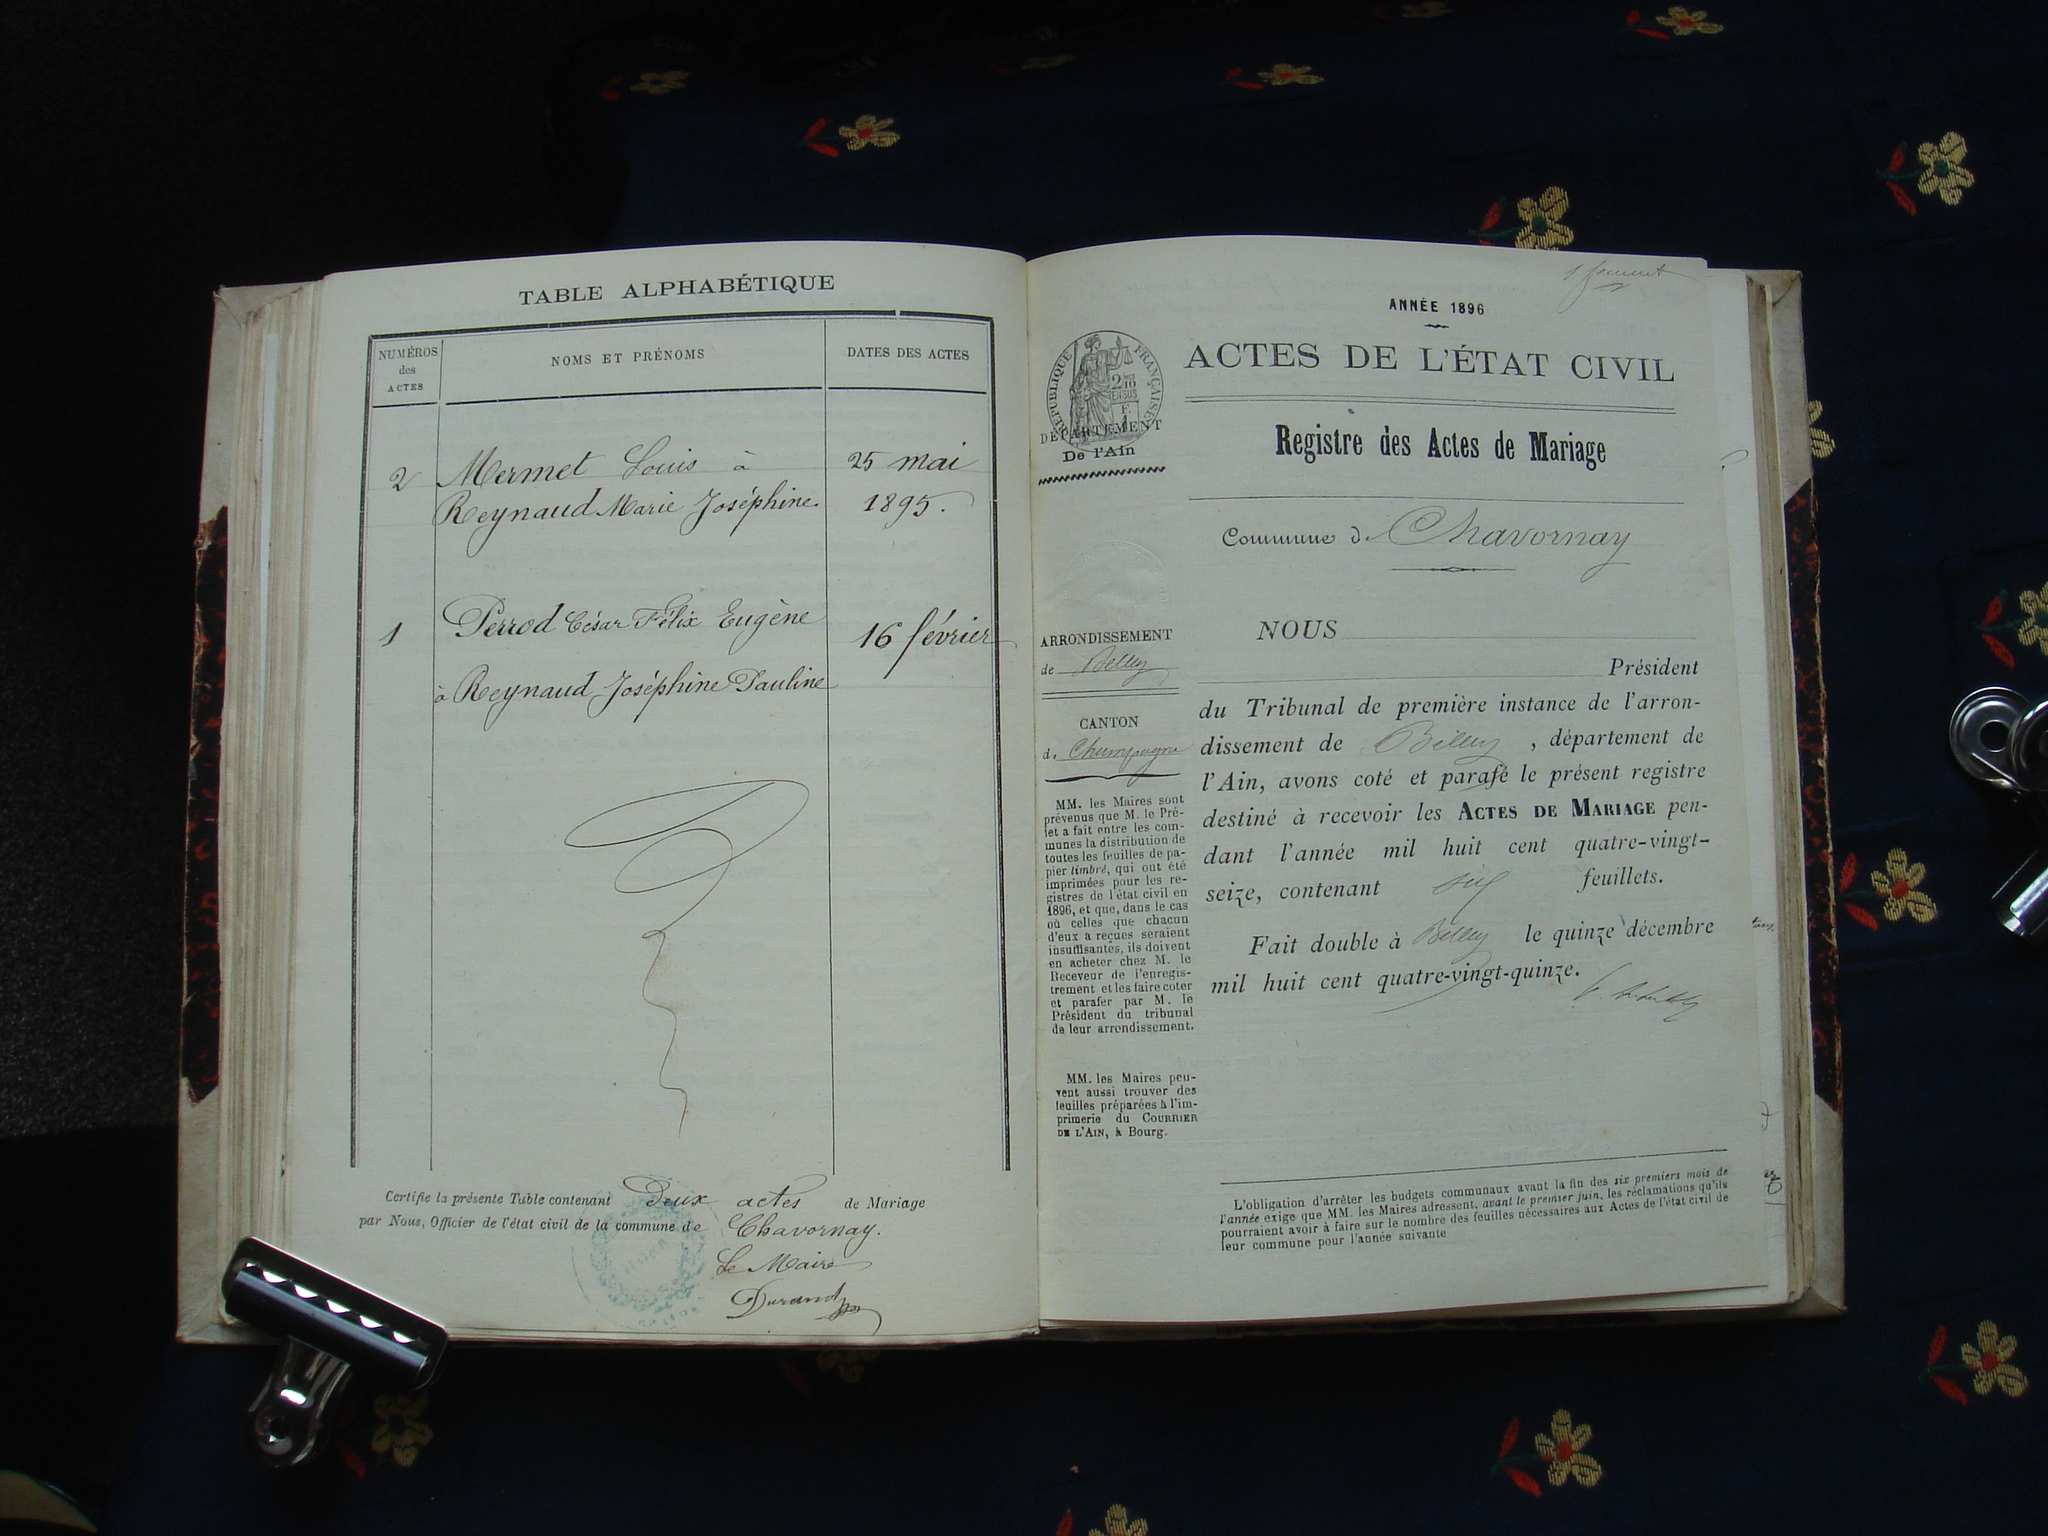 TABLE ALPHABÉTIQUE
NUMÉROS
des
ACTES
NOMS ET PRÉNOMS
DATES DES ACTES
2 Mermet Louis à 25 mai
Reynaud Marie Joséphine. 1895.
1 Perrod César Félix Eugène 16 février
à Reynaud Joséphine Pauline
Certifie la présente Table contenant Deux actes de Mariage
par Nous, Officier de l'état civil de la commune de Chavornay.
Le Maire
Durand
ANNÉE 1896
ACTES DE L'ÉTAT CIVIL
RÉPUBLIQUE FRANÇAISE
DÉPARTEMENT
De l'Ain
Registre des Actes de Mariage
Commune de Chavornay
ARRONDISSEMENT
de Belley
CANTON
de Champagne
MM. les Maires sont
prévenus que M. le Pré-
fet a fait entre les com-
munes la distribution de
toutes les feuilles de pa-
pier timbré, qui ont été
imprimées pour les re-
gistres de l'état civil en
1896, et que, dans le cas
où celles que chacun
d'eux a reçues seraient
insuffisantes, ils doivent
en acheter chez M. le
Receveur de l'enregis-
trement et les faire coter
et parafer par M. le
Président du tribunal
de leur arrondissement.
MM. les Maires peu-
vent aussi trouver des
feuilles préparées à l'im-
primerie du COURRIER
DE L'AIN, à Bourg.
NOUS
Président
du Tribunal de première instance de l'arron-
dissement de Belley, département de
l'Ain, avons coté et parafé le présent registre
destiné à recevoir les ACTES DE MARIAGE pen-
dant l'année mil huit cent quatre-vingt-
seize, contenant six feuillets.
Fait double à Belley le quinze décembre
mil huit cent quatre-vingt-quinze.
L'obligation d'arrêter les budgets communaux avant la fin des six premiers mois de
l'année exige que MM. les Maires adressent, avant le premier juin, les réclamations qu'ils
pourraient avoir à faire sur le nombre des feuilles nécessaires aux Actes de l'état civil de
leur commune pour l'année suivante